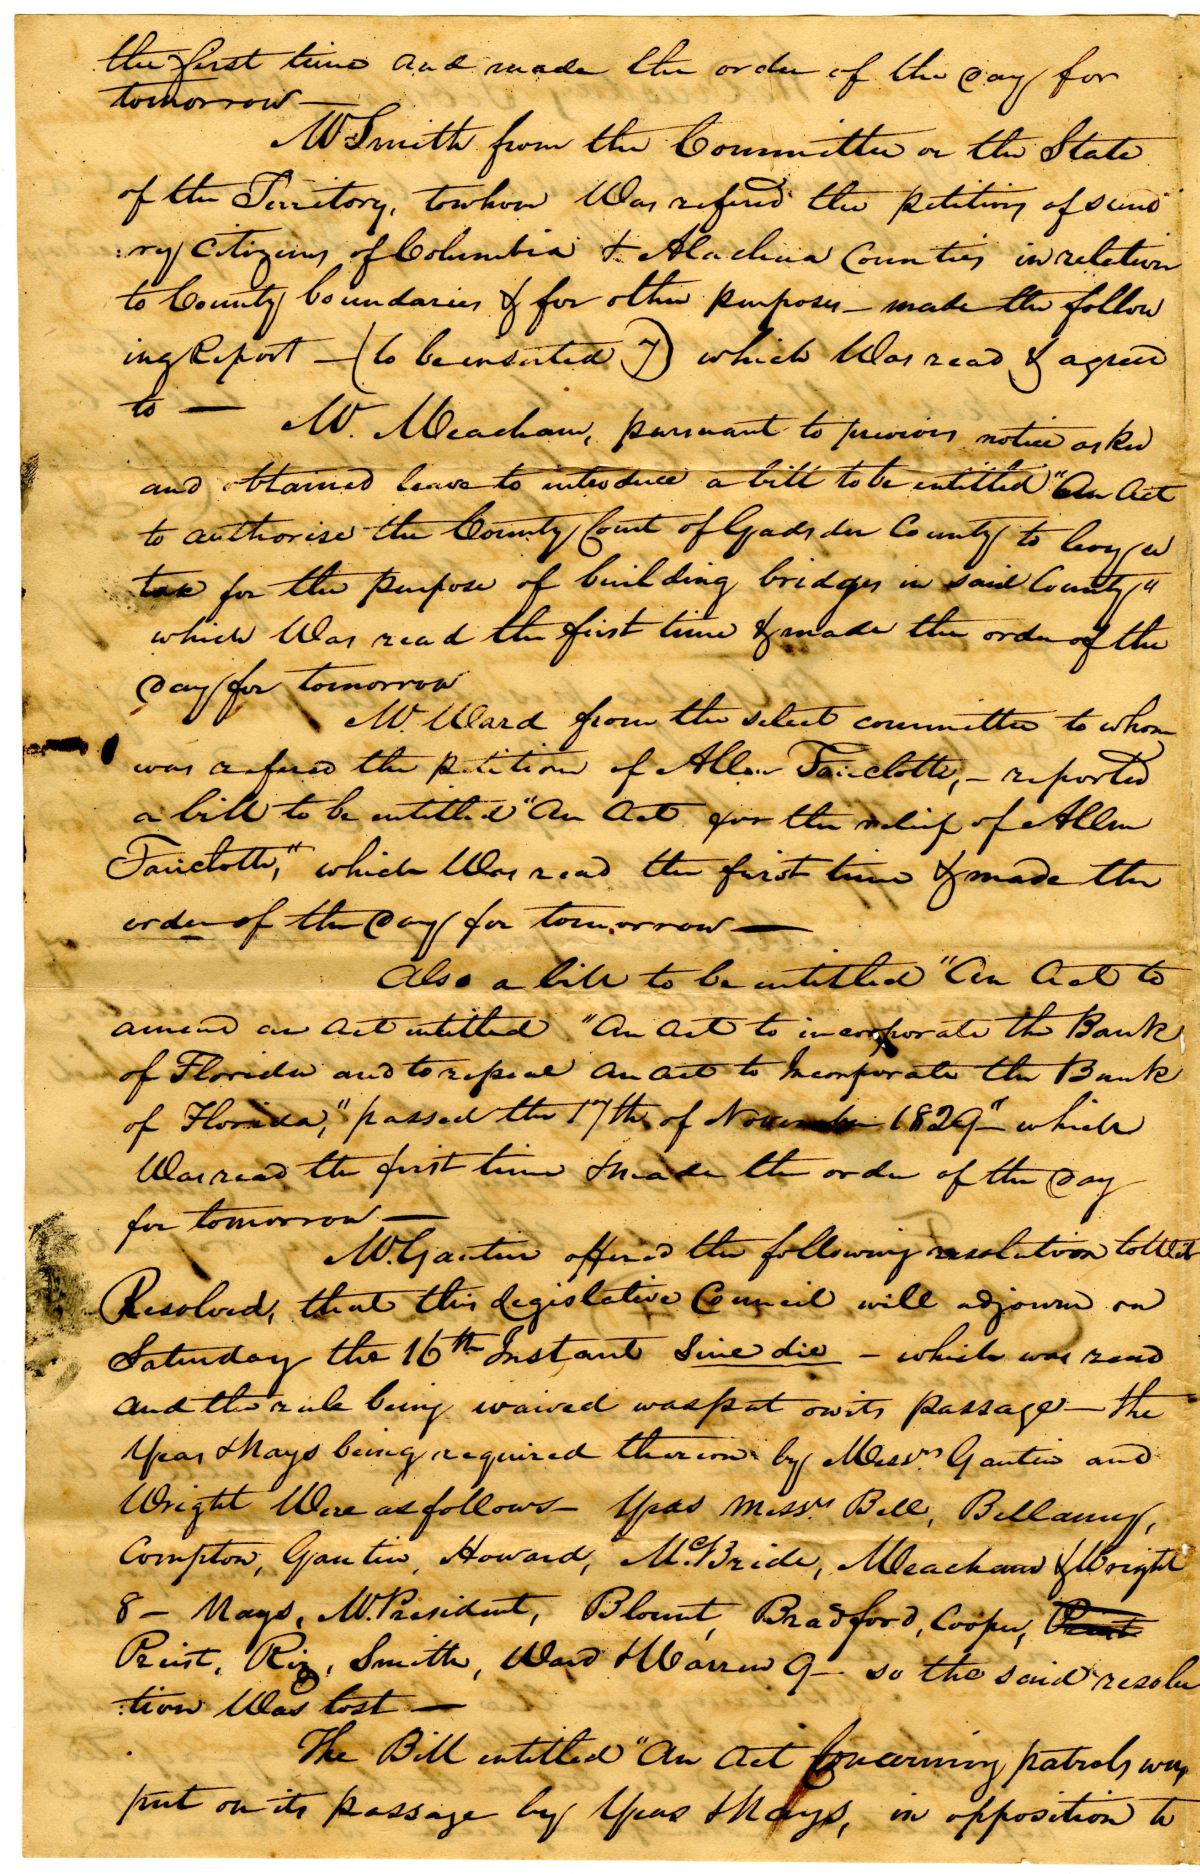 the first time and made the order of the day for
tomorrow —
Mr Smith from the Committee on the State
of the Territory, to whom Was refered the petition of sund
:ry citizens of Columbia & Alachua Counties in relation
to County boundaries & for other purposes — made the follow
ing Report — (to be inserted 7) which Was read & agreed
to —
Mr. Meacham, pursuant to previous notice asked
and obtained leave to introduce a bill to be entitled "An Act
to authorise the County Court of Gadsden County to levy a
tax for the purpose of building bridges in said County"
which Was read the first time & made the order of the
Day for tomorrow
Mr. Ward from the select committee to whom
was refered the petition of Allen Faircloth, — reported
a bill to be entitled "An Act for the relief of Allen
Faircloth," which Was read the first time & made the
order of the Day for tomorrow —
Also a bill to be entitled "An Act to
amend an act entitled "An act to incorporate the Bank
of Florida and to repeal an act to Incorporate the Bank
of Florida," passed the 17th of November 1829" which
Was read the first time & made the order of the Day
for tomorrow —
Mr. Gautier offered the following resolution to Wit
Resolved, that this Legislative Council will adjourn on
Saturday the 16th Instant Sine die — which was read
and the rule being waived was put on its passage — the
Yeas & Nays being required thereon by Messrs Gautier and
Wright Were as follows — Yeas Messrs Bell, Bellamy,
Compton, Gautier, Howard, McBride, Meacham & Wright
8 — Nays, Mr. President, Blount, Bradford, Cooper,
Priest, , Smith, Ward & Warren 9 — so the said resolu
:tion Was lost —
The Bill entitled "An Act Concerning patrols was
put on its passage by Yeas & Nays, in opposition to